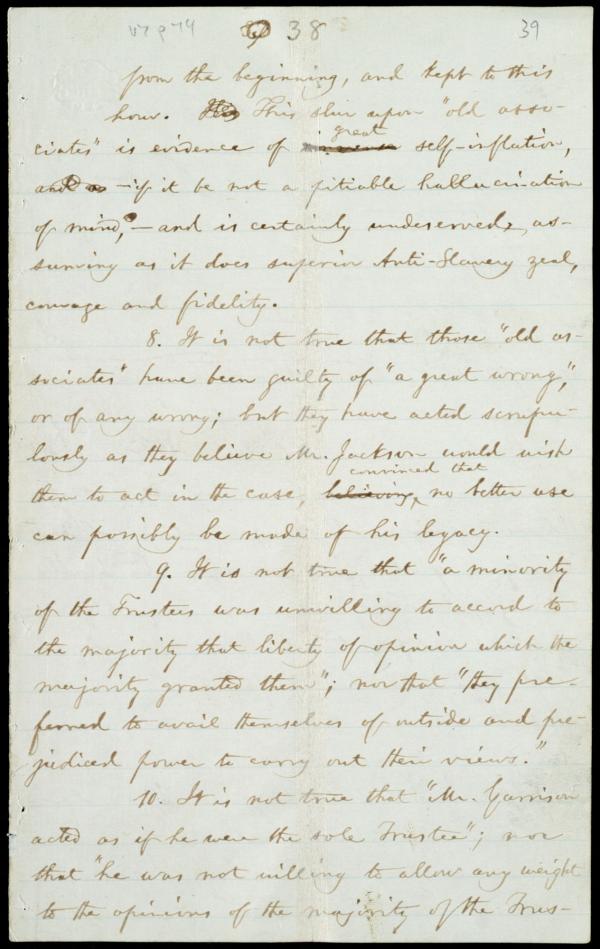 v7 p74 38 39
from the beginning, and kept to this
hour. This slur upon "old asso-
great
ciates" is evidence of self-inflation,
and as —if it be not a pitiable hallucination
of mind,—and is certainly undeserved, as-
suming as it does superior Anti-Slavery zeal,
courage and fidelity.
8. It is not true that those "old as-
sociates" have been guilty of "a great wrong,"
or of any wrong; but they have acted scrupu-
lously as they believe Mr. Jackson would wish
convinced that
them to act in the case, believing, no better use
can possibly be made of his legacy.
9. It is not true that "a minority
of the Trustees was unwilling to accord to
the majority that liberty of opinion which the
majority granted them"; nor that "they pre-
ferred to avail themselves of outside and pre-
judiced power to carry out their views."
10. It is not true that "Mr. Garrison
acted as if he were the sole Trustee"; nor
that "he was not willing to allow any weight
to the opinions of the majority of the Trus-